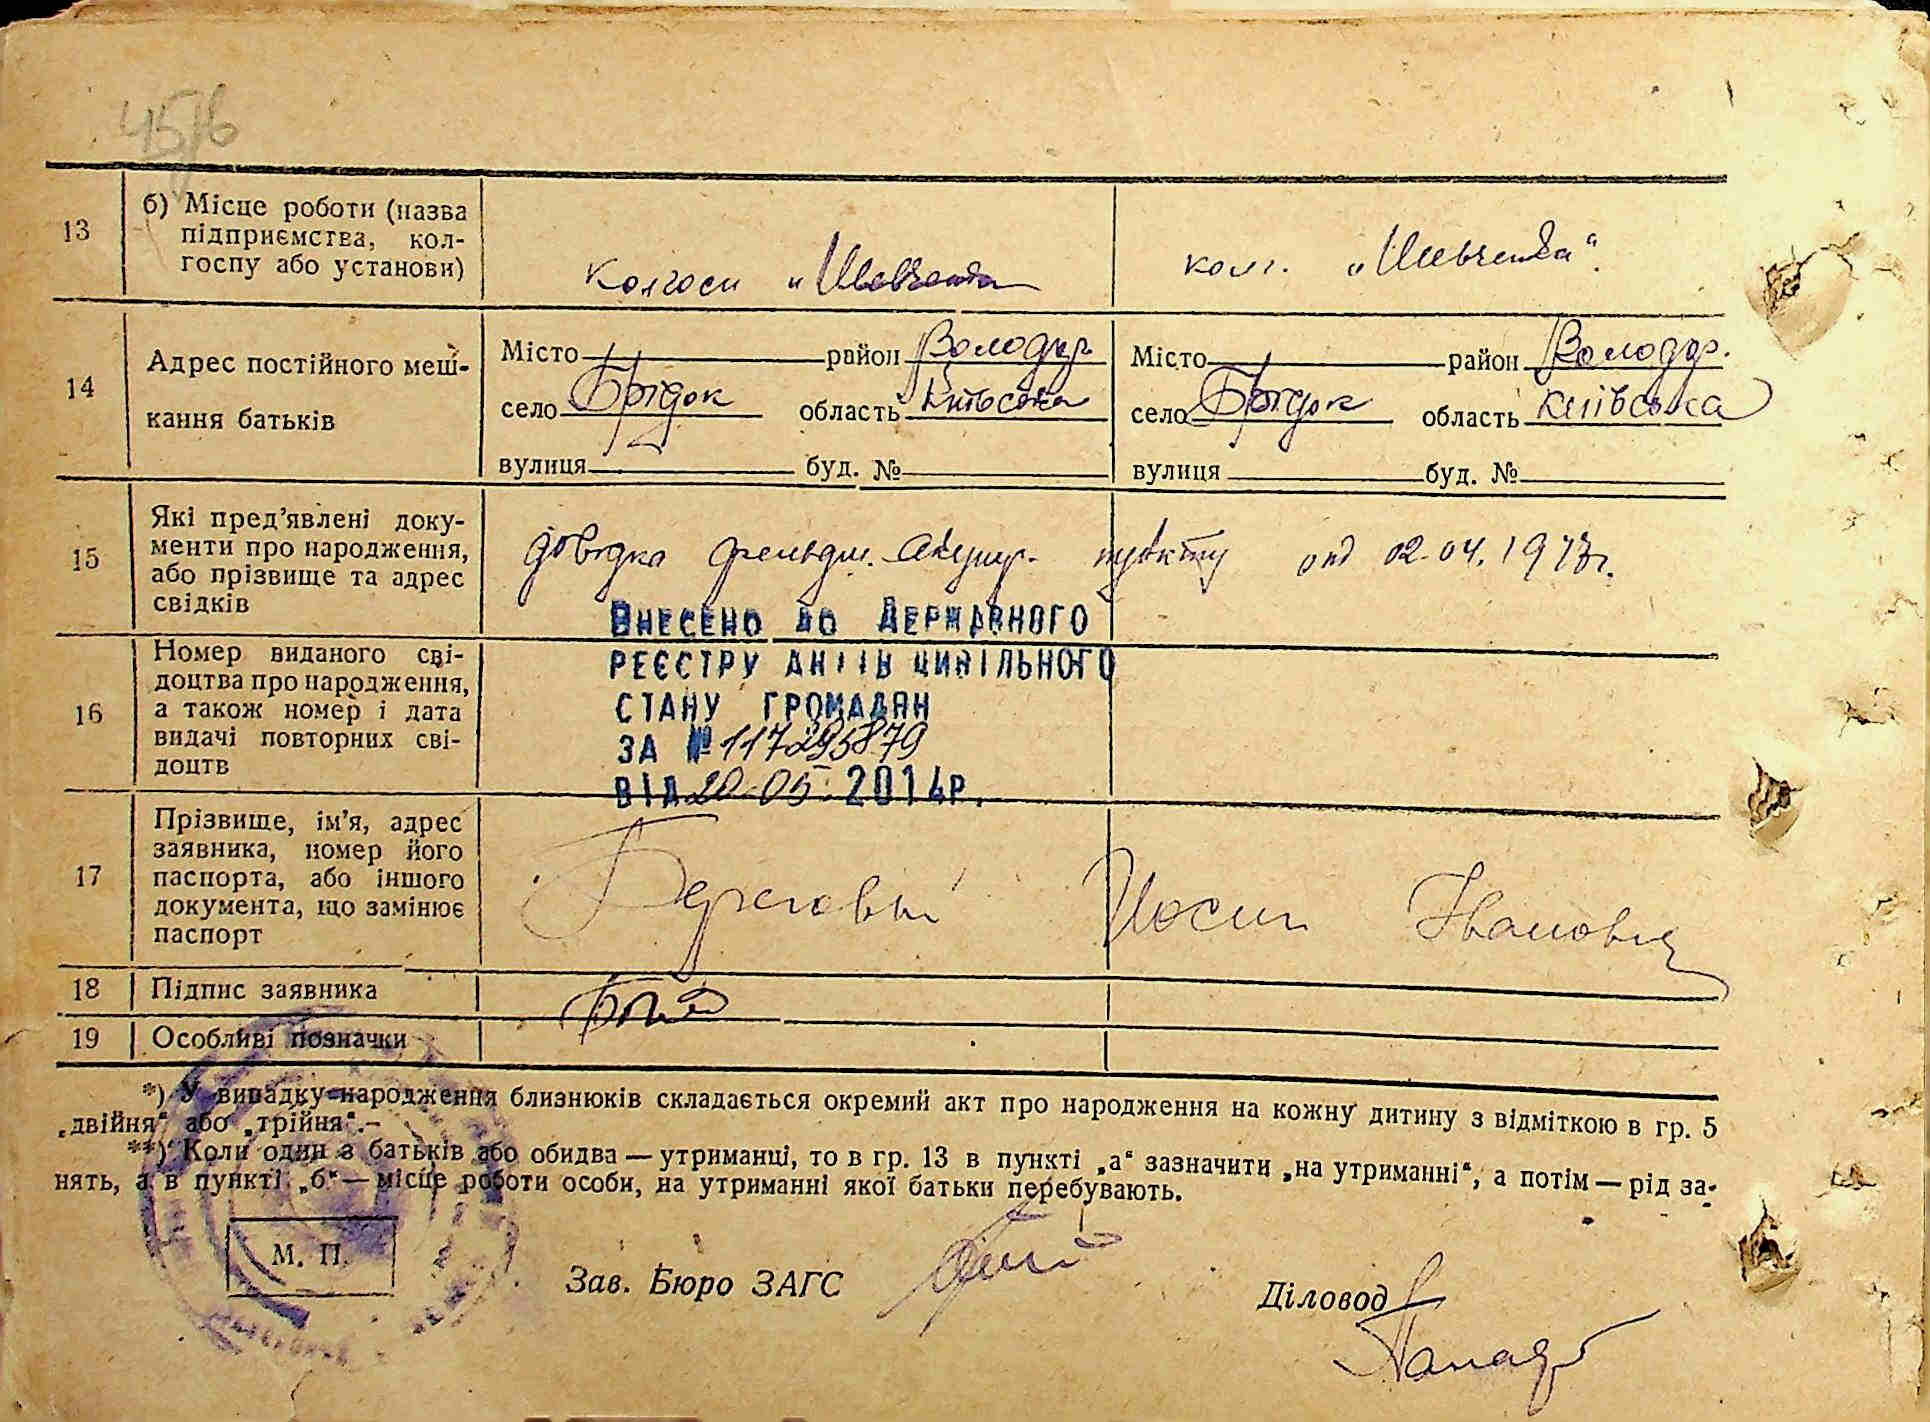 45/6
13 б) Місце роботи (назва підприємства, колгоспу або установи)
колгосп „Шевченка
колг. „Шевченка“.
14 Адрес постійного мешкання батьків
Місто район Володар.
село Брідок область Київська
вулиця буд. №
Місто район Володар.
село Брідок область Київська
вулиця буд. №
15 Які пред’явлені документи про народження, або прізвище та адрес свідків
довідка фельдш. акушер. пункту від 02.04.1973г.
16 Номер виданого свідоцтва про народження, а також номер і дата видачі повторних свідоцтв
ВНЕСЕНО ДО ДЕРЖАВНОГО
РЕЄСТРУ АКТІВ ЦИВІЛЬНОГО
СТАНУ ГРОМАДЯН
ЗА № 117295879
ВІД 20.05. 2014Р.
17 Прізвище, ім’я, адрес заявника, номер його паспорта, або іншого документа, що замінює паспорт
Береговий Йосип Іванович
18 Підпис заявника
19 Особливі позначки
*) У випадку народження близнюків складається окремий акт про народження на кожну дитину з відміткою в гр. 5
„двійня“ або „трійня“.–
**) Коли один з батьків або обидва — утриманці, то в гр. 13 в пункті „а“ зазначити „на утриманні“, а потім — рід за-
нять, а в пункті „б“ — місце роботи особи, на утриманні якої батьки перебувають.
М. П.
Зав. Бюро ЗАГС
Діловод